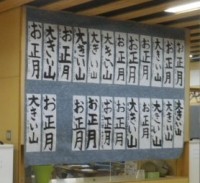 お正月
お正月
お正月
お正月
大きい山
大きい山
お正月
大きい山
お正月
大きい山
お正月
大きい山
お正月
大きい山
お正月
大きい山
大きい山
お正月
お正月
お正月
大きい山
大きい山